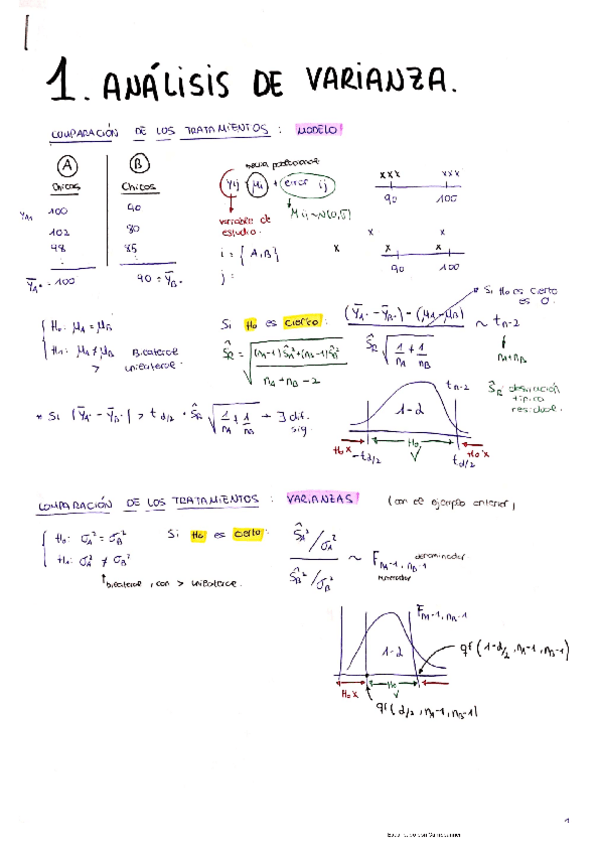 1. ANÁLISIS DE VARIANZA.
COMPARACIÓN DE LOS TRATAMIENTOS : MODELO!
A B
Chicas Chicos
100 90
102 80
98 85
ȳA• = 100 90 = ȳB•
media poblacional
yij = μi + error ij
variable de estudio.
Mij ~ N(0,σ)
i = {A,B}
j =
xxx xxx
90 100
x x
x x x
90 100
H0: μA = μB
H1: μA ≠ μB Bilateral
> unilateral.
Si H0 es cierto:
ŜR = √((nA-1)ŜA²+(nB-1)ŜB² / nA+nB-2)
(ȳA• - ȳB•) - (μA-μB) / ŜR √(1/nA + 1/nB) ~ tn-2
Si H0 es cierto es 0.
nA+nB
ŜR: desviación típica residual.
* Si |ȳA• - ȳB•| > tα/2 • ŜR √(1/nA + 1/nB) → ∃ dif. sig.
tn-2
1-α
H0 x H0 ✓ H0 x
-tα/2 tα/2
COMPARACIÓN DE LOS TRATAMIENTOS : VARIANZAS! (con el ejemplo anterior)
H0: σA² = σB²
H1: σA² ≠ σB²
bilateral, con > unilateral.
Si H0 es cierto:
ŜA²/σA² / ŜB²/σB² ~ FnA-1, nB-1
denominador
numerador
FnA-1, nB-1
1-α
H0 x H0 ✓
qf(1-α/2, nA-1, nB-1)
qf(α/2, nA-1, nB-1)
1